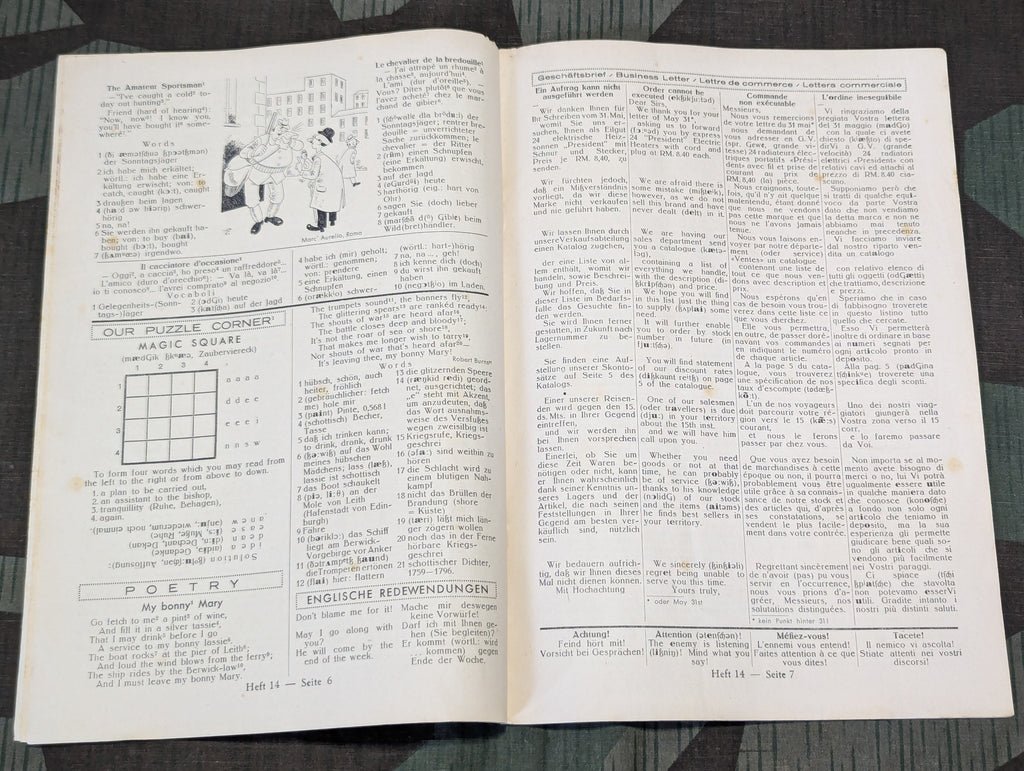 The Amateur Sportsman¹
— "I've caught a cold² to-
day out hunting³."
Friend (hard of hearing⁴):
"Now, now⁵! I know you,
you'll have bought it⁶ some-
where⁷."
Words
der Sonntagsjäger
2 ich habe mich erkältet;
wörtl.: ich habe eine Er-
kältung erwischt; von: to
catch, caught (kɔ:t), caught
3 draußen beim Jagen
hörig
5 na, na!
6 Sie werden ihn gekauft ha-
ben; von: to buy (bai),
bought (bɔ:t), bought
irgendwo.
Le chevalier de la bredouille¹
— J'ai attrapé un rhume² à
la chasse³, aujourd'hui⁴.
L'ami (dur d'oreille⁵).
— Vous? Dites plutôt⁶ que vous
l'avez acheté⁷ chez le mar-
chand de gibier⁸.
Sonntagsjäger; rentrer bre-
douille = unverrichteter
Sache zurückkommen; le
chevalier = der Ritter
2 (rüm) einen Schnupfen
(eine Erkältung) erwischt,
von: attraper
3 auf der Jagd
heute
5 harthörig (eig.: hart von
Ohr)
6 sagen Sie (doch) lieber
7 gekauft
beim
Wild(bret)händler.
Marc' Aurelio, Roma
Il cacciatore d'occasione¹
— Oggi², a caccia³, ho preso⁴ un raffreddore⁵.
L'amico (duro d'orecchio⁶). — Va là, va là⁷...
io ti conosco⁸... l'avrai comprato⁹ al negozio¹⁰.
Vocaboli
1 Gelegenheits-(Sonn-
tags-)jäger
heute
auf der Jagd
4 habe ich (mir) geholt;
wörtl.: genommen;
von: prendere
5 eine Erkältung, einen
Schnupfen
schwer-
(wörtl.: hart-)hörig
7 na, na..., geh!
8 ich kenne dich (doch)
9 du wirst ihn gekauft
haben
im Laden.
OUR PUZZLE CORNER¹
MAGIC SQUARE
Zauberviereck)
1 2 3 4
1
2
3
4
a a a a
d d e e
e e e i
n n s w
To form four words which you may read from
the left to the right or from above to down.
1. a plan to be carried out,
2. an assistant to the bishop,
3. tranquillity (Ruhe, Behagen),
4. again.
POETRY
My bonny¹ Mary
Go fetch to me² a pint³ of wine,
And fill it in a silver tassie⁴,
That I may drink⁵ before I go
A service to my bonny lassie⁶.
The boat rocks⁷ at the pier of Leith⁸;
And loud the wind blows from the ferry⁹;
The ship rides by the Berwick-law¹⁰,
And I must leave my bonny Mary.
The trumpets sound¹¹, the banners fly¹²,
The glittering spears¹³ are ranked ready¹⁴;
The shouts of war¹⁵ are heard afar¹⁶,
The battle closes deep and bloody¹⁷;
It's not the roar of sea or shore¹⁸,
That makes me longer wish to tarry¹⁹,
Nor shouts of war that's heard afar²⁰—
It's leaving thee, my bonny Mary!
Robert Burns²¹
Words
1 hübsch, schön, auch
heiter, fröhlich
2 (gebräuchlicher: fetch
me) hole mir
3 (paint) Pinte, 0,568 l
4 (schottisch) Becher,
Tasse
5 daß ich trinken kann;
to drink, drank, drunk
auf das Wohl
meines hübschen
lassie ist schottisch
7 das Boot schaukelt
an der
Mole von Leith
(Hafenstadt von Edin-
burgh)
9 Fähre
das Schiff
liegt am Berwick-
Vorgebirge vor Anker
die Trompeten ertönen
12 (flai) hier: flattern
13 die glitzernden Speere
geord-
net, ausgerichtet; das
„e" steht mit Akzent,
um anzudeuten, daß
das Wort ausnahms-
weise des Versfußes
wegen zweisilbig ist
15 Kriegsrufe, Kriegs-
geschrei
sind weithin zu
hören
17 die Schlacht wird zu
einem blutigen Nah-
kampf
18 nicht das Brüllen der
Brandung (shore
= Küste)
läßt mich län-
ger zögern wollen
20 noch das in der Ferne
hörbare Kriegs-
geschrei
21 schottischer Dichter,
1759—1796.
ENGLISCHE REDEWENDUNGEN
Don't blame me for it!
Mache mir deswegen
keine Vorwürfe!
May I go along with
you?
Darf ich mit Ihnen ge-
hen (Sie begleiten)?
He will come by the
end of the week.
Er kommt (wörtl.: wird
... kommen) gegen
Ende der Woche.
Heft 14 — Seite 6
Geschäftsbrief / Business Letter / Lettre de commerce / Lettera commerciale
Ein Auftrag kann nicht
ausgeführt werden
Wir danken Ihnen für
Ihr Schreiben vom 31. Mai,
womit Sie uns er-
suchen, Ihnen als Eilgut
24 elektrische Heiz-
sonnen „President" mit
Schnur und Stecker,
Preis je RM. 8,40, zu
senden.
Wir fürchten jedoch,
daß ein Mißverständnis
vorliegt, da wir diese
Marke nicht verkaufen
und nie geführt haben.
Wir lassen Ihnen durch
unsere Verkaufsabteilung
einen Katalog zugehen,
der eine Liste von al-
lem enthält, womit wir
handeln, sowie Beschrei-
bung und Preis.
Wir hoffen, daß Sie in
dieser Liste im Bedarfs-
falle das Gesuchte fin-
den werden.
Sie wird Ihnen ferner
gestatten, in Zukunft nach
Lagernummer zu be-
stellen.
Sie finden eine Auf-
stellung unserer Skonto-
sätze auf Seite 5 des
Katalogs.
Einer unserer Reisen-
den wird gegen den 15.
ds. Mts. in Ihrer Gegend
eintreffen,
und wir werden ihn
bei Ihnen vorsprechen
lassen.
Einerlei, ob Sie um
diese Zeit Waren be-
nötigen oder nicht, kann
er Ihnen wahrscheinlich
dank seiner Kenntnis un-
seres Lagers und der
Artikel, die nach seinen
Feststellungen in Ihrer
Gegend am besten ver-
käuflich sind, nützlich
sein.
Wir bedauern aufrich-
tig, daß wir Ihnen dieses
Mal nicht dienen können.
Mit Hochachtung
Order cannot be
Dear Sirs,
We thank you for your
letter of May 31*,
asking us to forward
you by express
24 "President" Electric
Heaters with cord and
plug at RM. 8.40 each.
We are afraid there is
some mistake
however, as we do not
sell this brand and have
never dealt (delt) in it.
We are having our
sales department send
you a catalogue
containing a list of
everything we handle,
with the description
and price.
We hope you will find
in this list just the thing
to supply your need.
It will further enable
you to order by stock
number in future
You will find statement
of our discount rates
on page 5
of the catalogue.
One of our salesmen
(oder travellers) is due
in your territory
about the 15th inst.
and we will have him
call upon you.
Whether you need
goods or not at that
time, he can probably
be of service
thanks to his knowledge
of our stock
and the items (aitəmz)
he finds best sellers in
your territory.
We sincerely
regret being unable to
serve you this time.
Yours truly,
* oder May 31st
Commande
non exécutable
Messieurs,
Nous vous remercions
de votre lettre du 31 mai*,
nous demandant de
vous adresser en G.V.
(spr. Gewé, grande vi-
tesse) 24 radiateurs élec-
triques portatifs «Prési-
dent» avec fil et prise de
courant au prix de
RM. 8,40 (la) pièce.
Nous craignons, toute-
fois, qu'il n'y ait quelque
malentendu, étant donné
que nous ne vendons
pas cette marque et que
nous ne l'avons jamais
vendue.
Nous vous laissons en-
voyer par notre départe-
ment (oder service)
«Ventes» un catalogue
contenant une liste de
tout ce que nous ven-
dons, avec description et
prix.
Nous espérons qu'en
cas de besoin vous trou-
verez dans cette liste ce
que vous cherchez.
Elle vous permettra,
en outre, de passer doré-
navant vos commandes
en indiquant le numéro
de chaque article.
A la page 5 du cata-
logue, vous trouverez
une spécification de nos
taux d'escompte
L'un de nos voyageurs
doit parcourir votre ré-
gion vers le 15
et,
et nous le ferons
passer par chez vous.
Que vous ayez besoin
de marchandises à cette
époque ou non, il pourra
probablement vous être
utile grâce à sa connais-
sance de notre stock et
des articles qui, d'après
ses constatations, se
vendent le plus facile-
ment dans votre con-
trée.
Regrettant sincèrement
de n'avoir (pas) pu vous
servir en l'occurrence,
nous vous prions d'a-
gréer, Messieurs, nos
salutations distinguées.
* kein Punkt hinter 31!
L'ordine ineseguibile
Vi ringraziamo della
pregiata Vostra lettera
del 31 maggio
con la quale ci avete
chiesto di spe-
dirVi a G.V. (grande
velocità) 24 radiatori
elettrici «President» con
relativi cavi ed attacchi al
prezzo di RM. 8.40 cia-
scuno.
Supponiamo però che
si tratti di qualche equi-
voco da parte Vostra
dato che non vendiamo
la detta marca e non ne
abbiamo mai tenuto
neanche in precedenza.
Vi facciamo inviare
dal nostro riparto ven-
dita un catalogo
con relativo elenco di
tutti gli oggetti
che trattiamo, descrizione
e prezzo.
Speriamo che in caso
di fabbisogno troverete
in questo listino tutto
quello che cercate.
Esso Vi permetterà
inoltre di ordinare in base
ai numeri segnati per
ogni articolo pronto in
deposito.
Alla pag. 5
troverete la spe-
cifica degli sconti.
Uno dei nostri viag-
giatori giungerà nella
Vostra zona verso il 15
corr.
e lo faremo passare
da Voi.
Non importa se al mo-
mento avete bisogno di
merci o no, lui Vi potrà
ugualmente essere utile
in qualche maniera dato
che conosce
a fondo non solo ogni
articolo che teniamo in
deposito, ma la sua
esperienza gli permette
giudicare bene quali so-
no gli articoli che si
vendono più facilmente
nei Vostri paraggi.
Ci spiace
che stavolta
non potevamo esserVi
utili. Gradite intanto i
nostri più distinti saluti.
Achtung!
Feind hört mit!
Vorsicht bei Gesprächen!
The enemy is listening
Mind what you
say!
Méfiez-vous!
L'ennemi vous entend!
Faites attention à ce que
vous dites!
Tacete!
Il nemico vi ascolta!
Stiate attenti nei vostri
discorsi!
Heft 14 — Seite 7